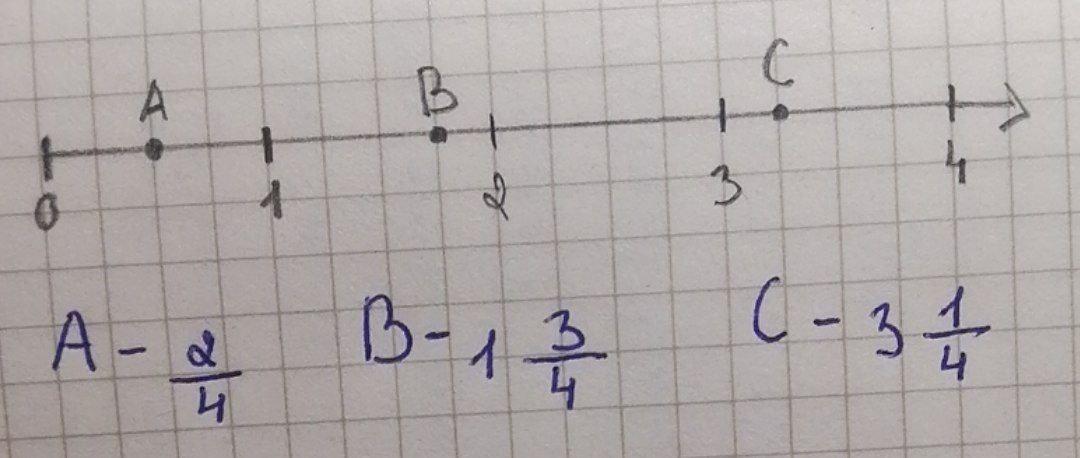 A B C
0 1 2 3 4
A - 2/4 B - 1 3/4 C - 3 1/4